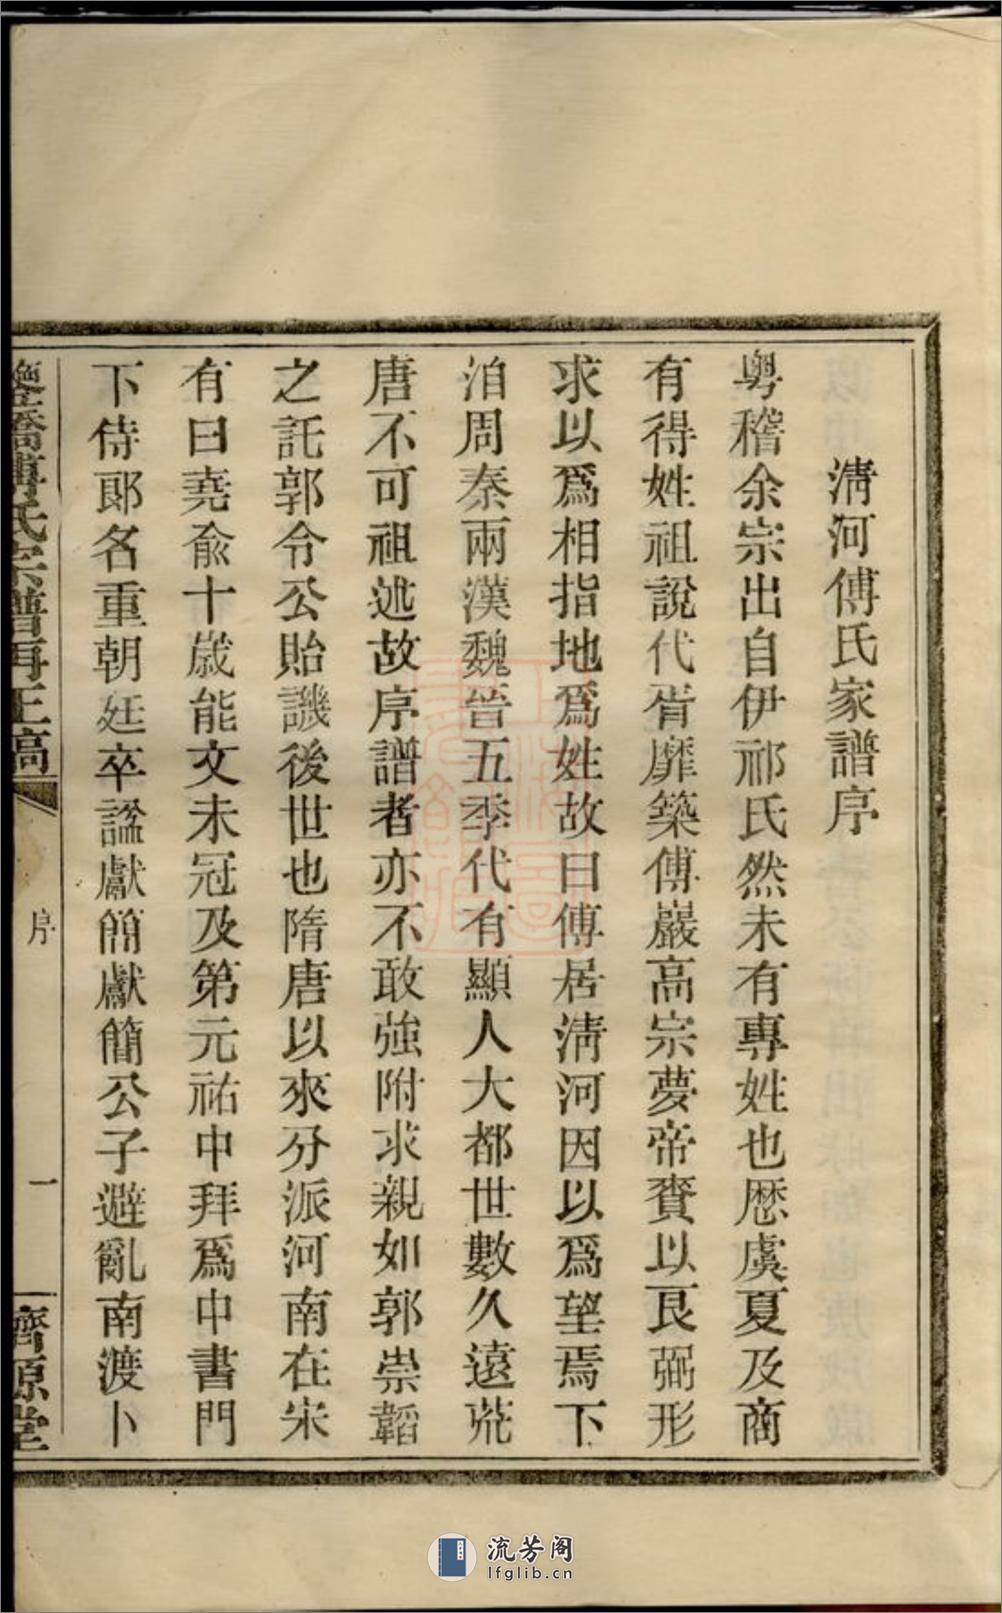 清河傅氏家譜序
粵稽余宗出自伊祁氏然未有專姓也厯虞夏及商
有得姓祖說代胥靡築傅巖高宗夢帝賚以良弼形
求以為相指地為姓故曰傅居清河因以為望焉下
洎周秦兩漢魏晉五季代有顯人大都世數久遠荒
唐不可祖述故序譜者亦不敢強附求親如郭崇韜
之託郭令公貽譏後世也隋唐以來分派河南在宋
有曰堯俞十歲能文未冠及第元祐中拜為中書門
下侍郎名重朝廷卒諡獻簡獻簡公子避亂南渡卜
橋傅氏宗譜再正稿
序
一
濟源堂
流芳阁
lfglib.cn